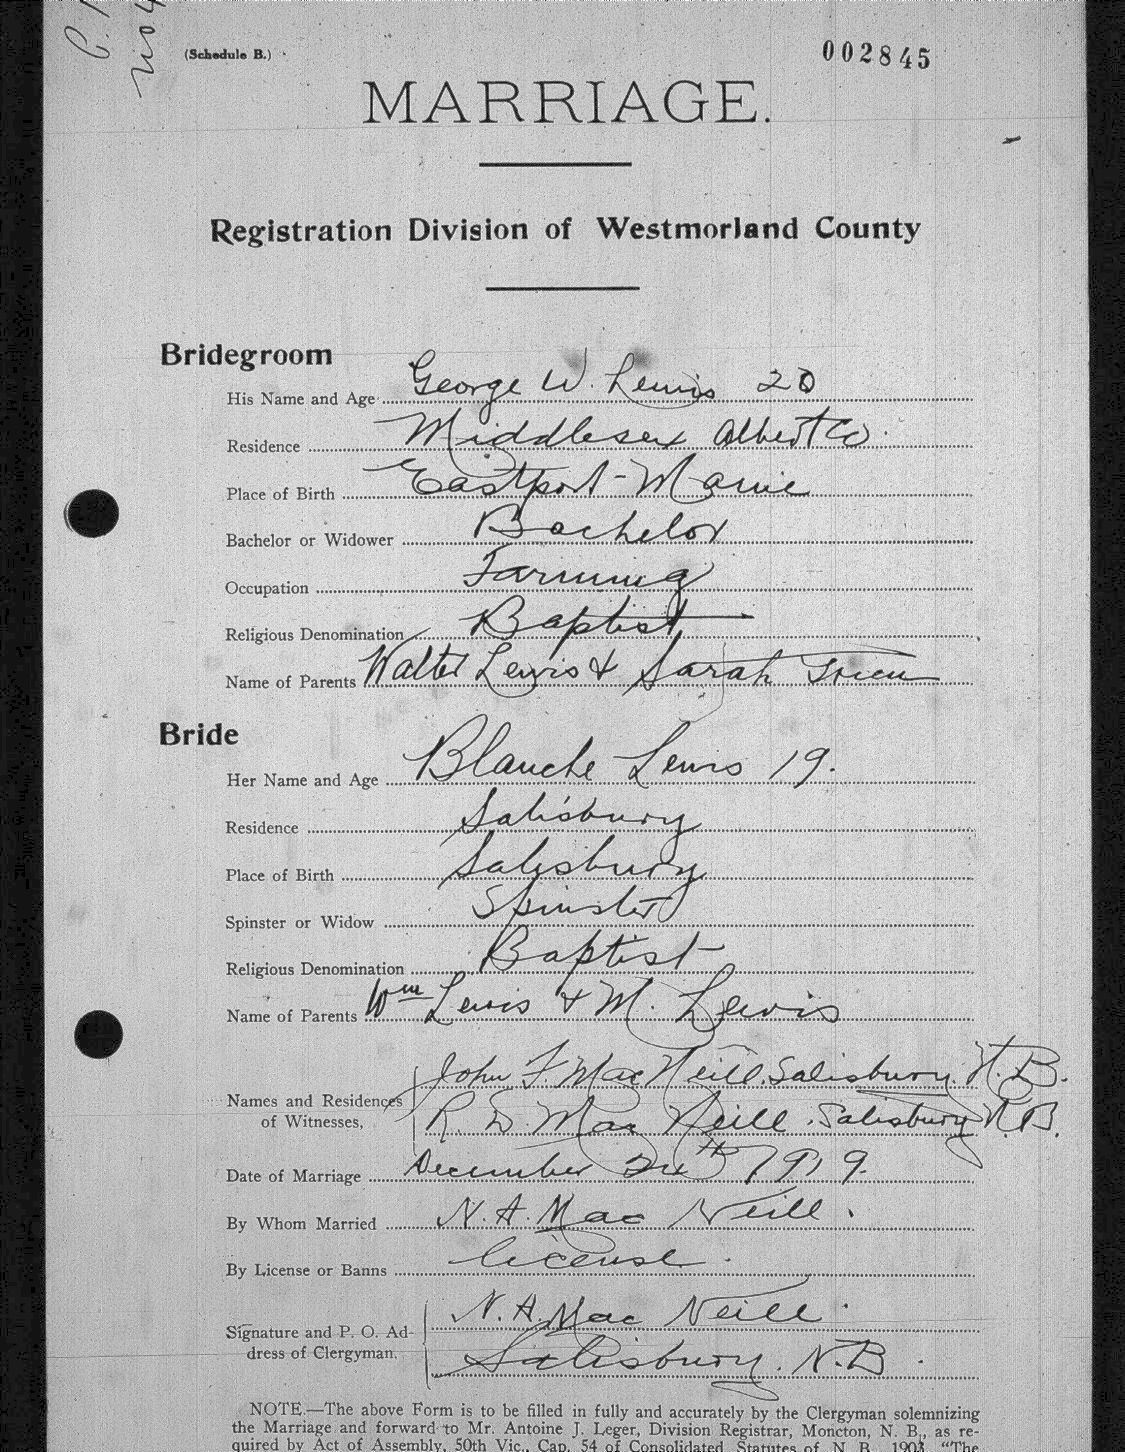 (Schedule B.)
002845
MARRIAGE.
Registration Division of Westmorland County
Bridegroom
His Name and Age George W. Lewis 20
Residence Middlesex Albert Co.
Place of Birth Eastport - Maine
Bachelor or Widower Bachelor
Occupation Farming
Religious Denomination Baptist
Name of Parents Walter Lewis & Sarah
Bride
Her Name and Age Blanche Lewis 19.
Residence Salisbury
Place of Birth Salisbury
Spinster or Widow Spinster
Religious Denomination Baptist
Name of Parents Wm Lewis & M. Lewis
Names and Residences of Witnesses,
John F. MacNeill, Salisbury, N.B.
R. D. MacNeill, Salisbury N.B.
Date of Marriage December 24th 1919.
By Whom Married N. A. MacNeill.
By License or Banns license.
Signature and P. O. Address of Clergyman.
N. A. MacNeill.
Salisbury, N.B.
NOTE.—The above Form is to be filled in fully and accurately by the Clergyman solemnizing
the Marriage and forward to Mr. Antoine J. Leger, Division Registrar, Moncton, N. B., as re-
quired by Act of Assembly, 50th Vic., Cap. 54 of Consolidated Statutes of N. B. 1903 "The